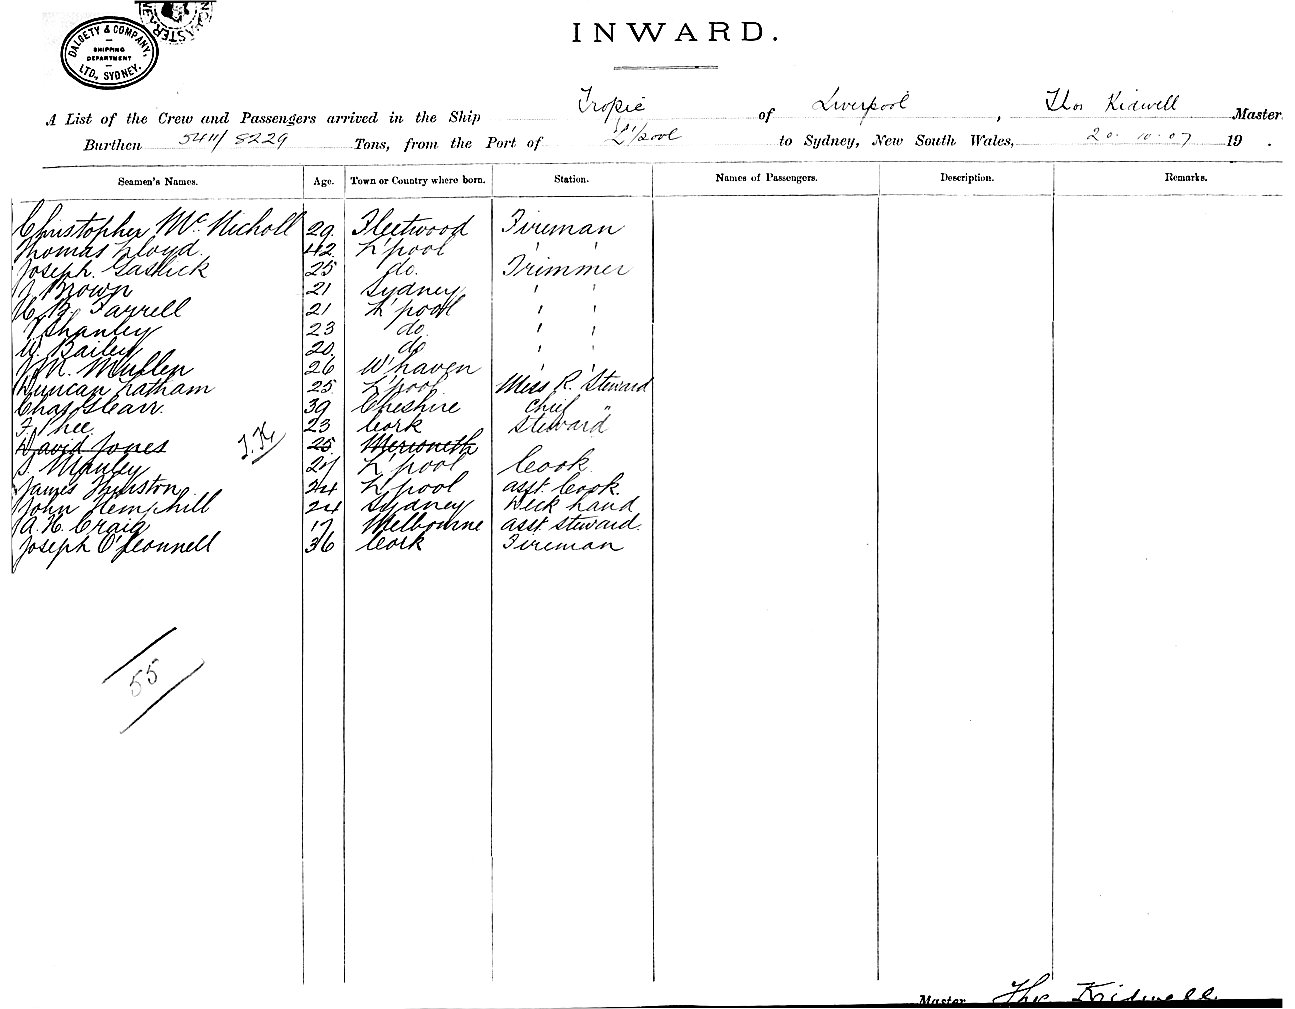 DALGETY & COMPANY, LTD, SYDNEY.
SHIPPING DEPARTMENT
INWARD.
A List of the Crew and Passengers arrived in the Ship Tropic of Liverpool, Thos Kidwell Master
Burthen 5411/8229 Tons, from the Port of L'pool to Sydney, New South Wales, 20.10.07 19 .
Seamen's Names. Age. Town or Country where born. Station. Names of Passengers. Description. Remarks.
Christopher McNicholl 29 Fleetwood Fireman
Thomas Lloyd 42 L'pool ' '
Joseph 25 do. Trimmer
J Brown 21 Sydney ' '
Farrell 21 L'pool ' '
Shanley 23 do ' '
W. Bailey 20 do ' '
J. M. Mullen 26 W'haven ' '
Duncan Latham 25 L'pool Mess R. Steward
Chas 39 Cheshire Chief "
F. Shee 23 Cork Steward
David Jones 25 Merioneth
T.K.
S. Manley 27 L'pool Cook
James 24 L'pool asst. Cook.
John Hemphill 24 Sydney Deck hand
A. H. Craig 17 Melbourne asst steward.
Joseph O'Connell 36 Cork Fireman
55
Master Thos Kidwell